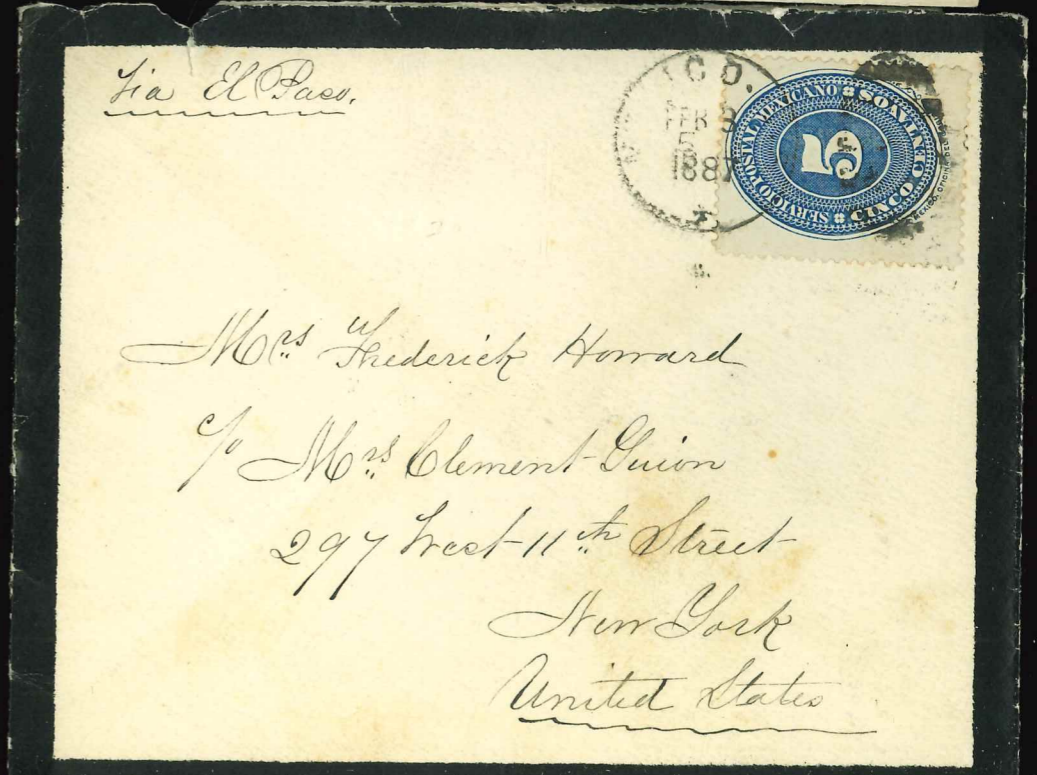 Via El Paso.
ICO.
FEB 3
5
1887
SERVICIO POSTAL MEXICANO
CINCO CENTAVOS
5
Mrs Frederick Howard
c/o Mrs Clement Guion
297 West 11th Street
New York
United States